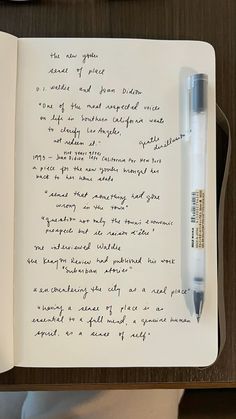 the new yorker
sense of place
D.J. Waldie and Joan Didion
"One of the most respected voices
on life in Southern California wants
to clarify Los Angeles,
not redeem it."
gentle
disallusion
five years after
1993 - Joan Didion left California for New York
a piece for the new yorker brought her
back to her home state
"sense that something had gone
wrong in the town"
"question not only the town's economic
prospects but its raison d'être"
she interviewed Waldie
the Kenyon Review had published his work
"suburban stories"
encountering the city as a real place"
"having a sense of place is as
essential to a full mind, a genuine human
spirit, as a sense of self"